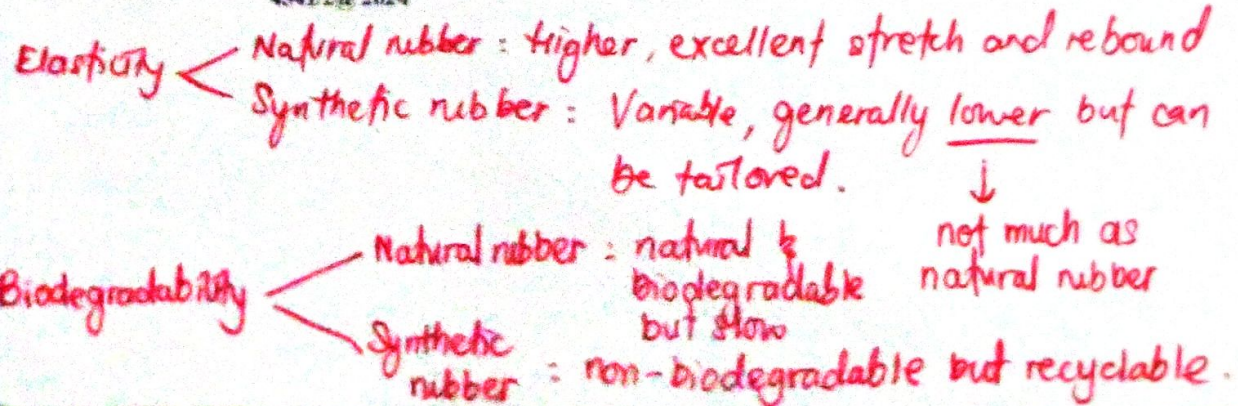 Elasticity
Natural rubber : Higher, excellent stretch and rebound
Synthetic rubber : Variable, generally lower but can
be tailored.
↓
not much as
natural rubber
Biodegradability
Natural rubber : natural &
biodegradable
but slow
Synthetic
rubber : non-biodegradable but recyclable.